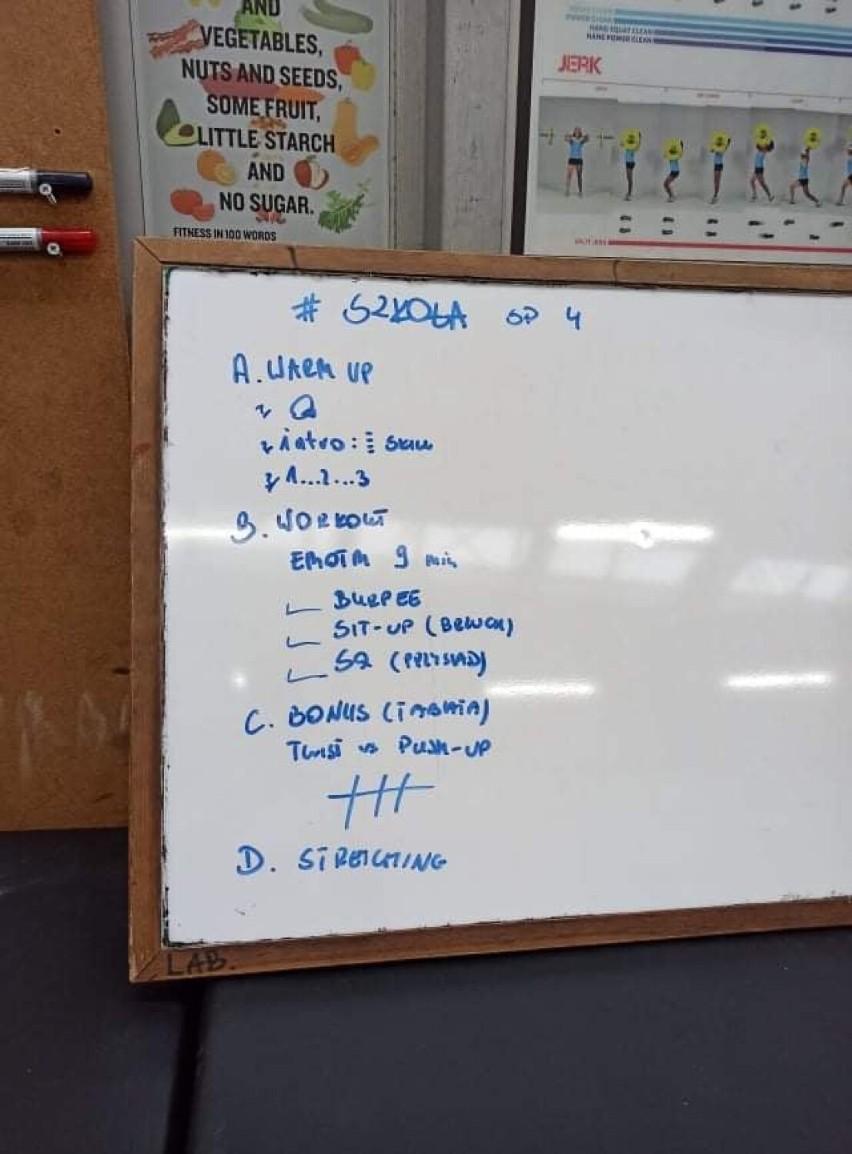 AND
VEGETABLES,
NUTS AND SEEDS,
SOME FRUIT,
LITTLE STARCH
AND
NO SUGAR.
FITNESS IN 100 WORDS
POWER CLEAN
HANG SQUAT CLEAN
HANG POWER CLEAN
JERK
SPLIT JERK
# SZKOŁA SP 4
A. WARM UP
intro:
1...2...3
B. WORKOUT
EMOTM 9 min
BURPEE
SIT-UP (BRZUCH)
SQ (PRZYSIAD)
C. BONUS (TABATA)
TWIST vs PUSH-UP
D. STRETCHING
LAB.